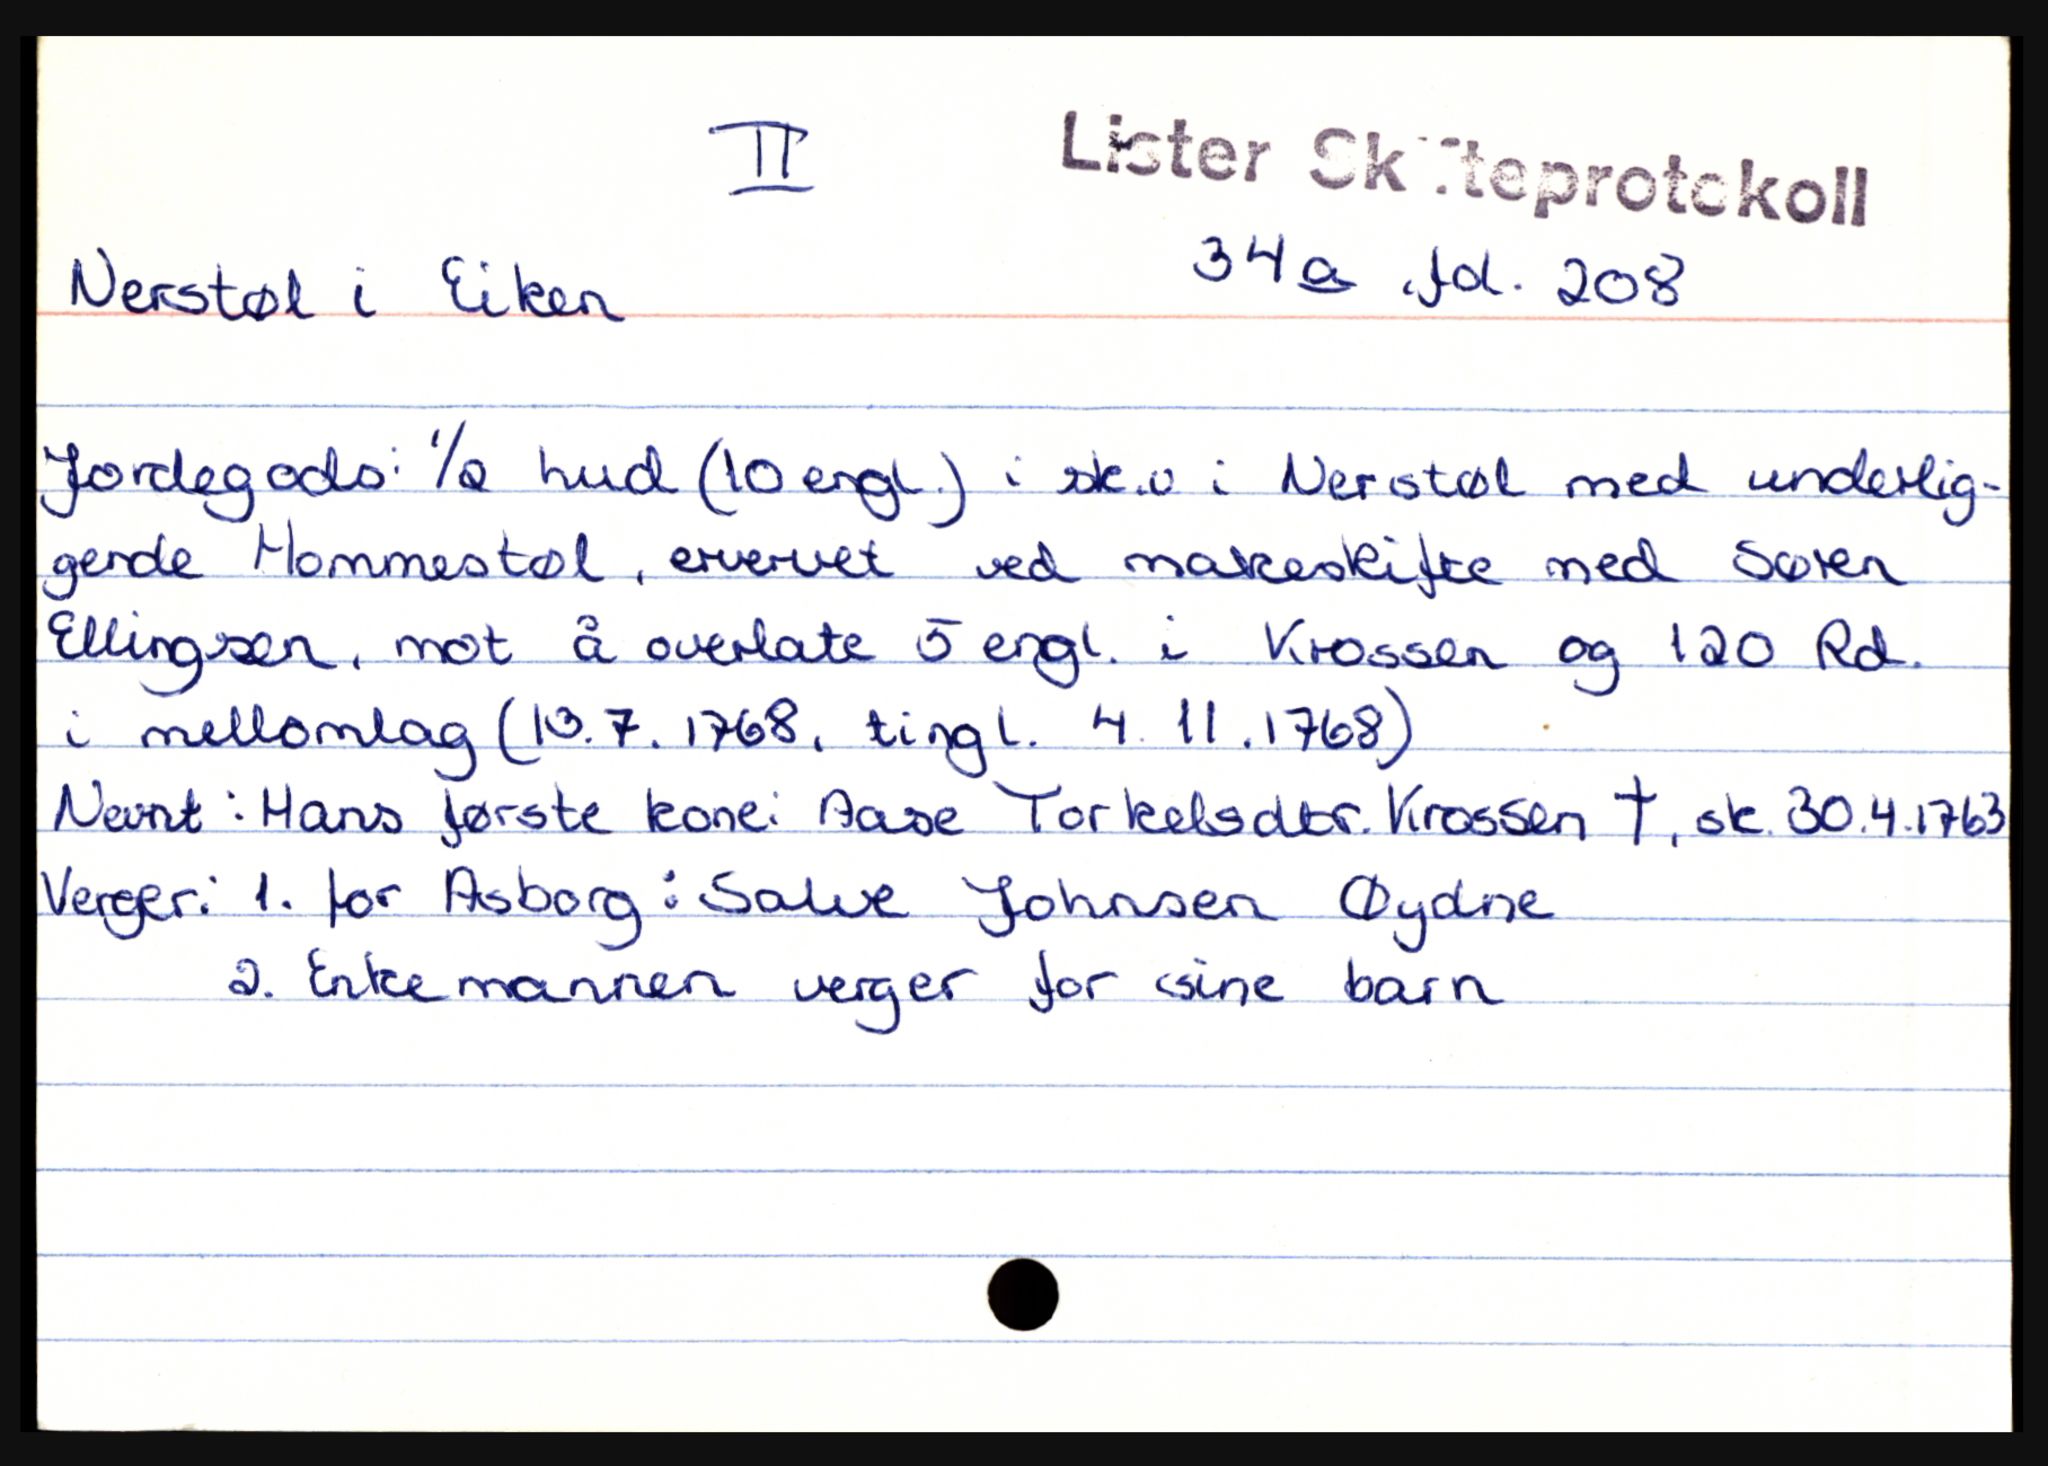 II
Lister Skifteprotokoll
34a fol. 208
Nerstøl i Eiken
Jordegods: 1/2 hud (10 engl.) i sk.v i Nerstøl med underlig-
gende Hommestøl, ervervet ved makeskifte med Søren
Ellingsen, mot å overlate 5 engl. i Krossen og 120 Rd.
i mellomlag (13.7.1768, tingl. 4 11.1768)
Nevnt: Hans første kone: Aase Torkelsdtr. Krossen †, sk. 30.4.1763
Verger: 1. for Asborg: Salve Johnsen Øydne
2. Enkemannen verger for sine barn